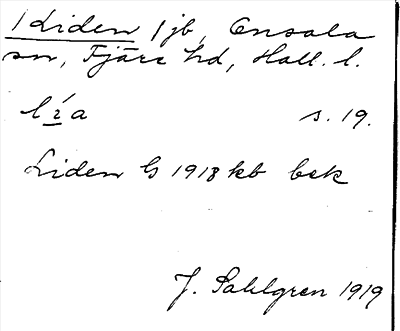 1 Liden 1 jb, Onsala
sn, Fjäre hd, Hall. l.
lía s. 19.
Liden G 1918 kb bek
J. Sahlgren 1919